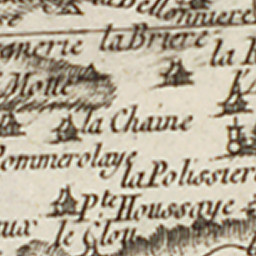 la Bellonniere
onnerie la Briere la
Motte
la Chaine
Pommerolaye
la Polissiere
Pte Houssaye
eux le Clou